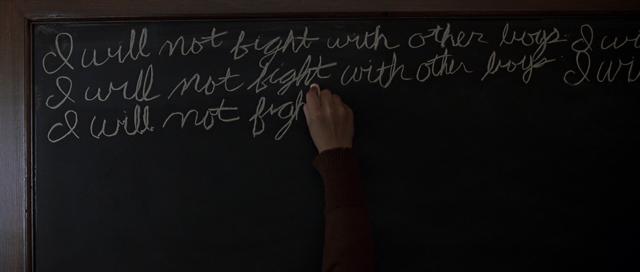 I will not fight with other boys I wi
I will not fight with other boys I wi
I will not figh